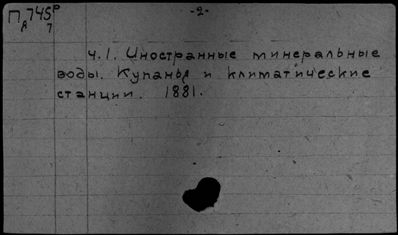 П 745 р
А 7
-2-
ч.1. Иностранные минеральные
воды. Купанья и климатические
станции. 1881.